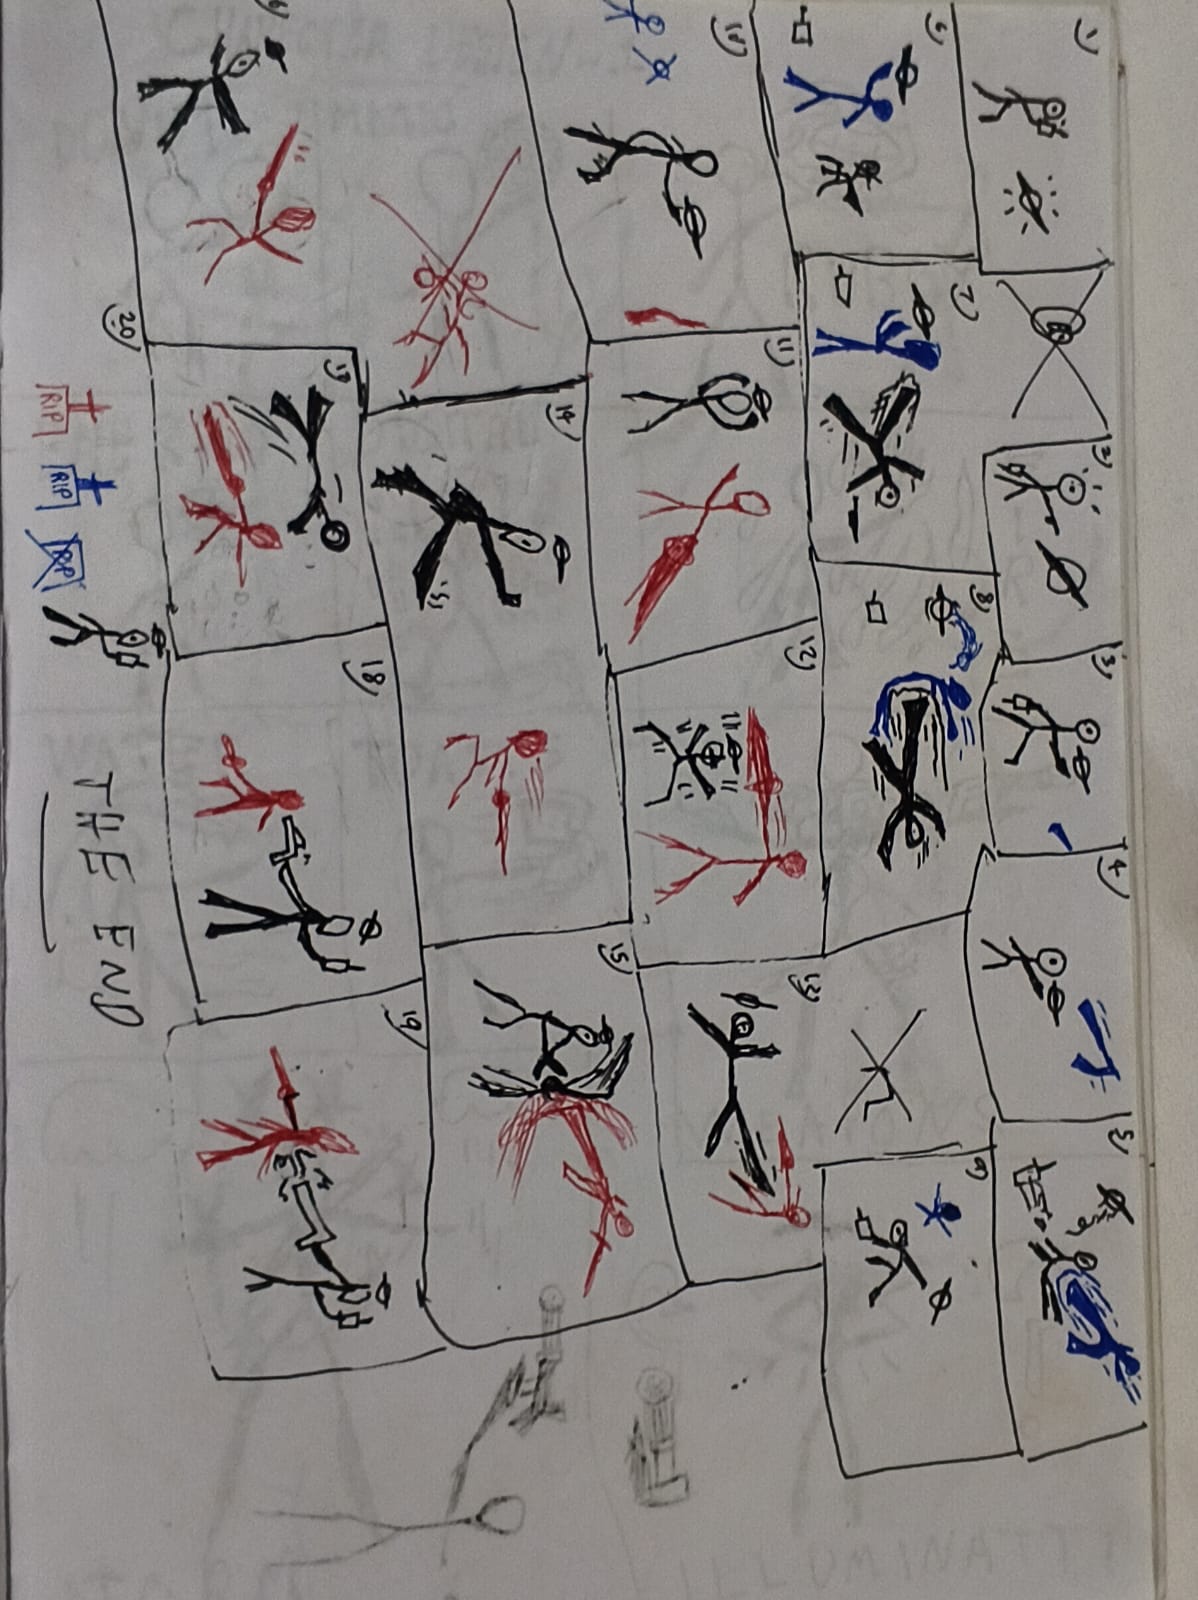 1)
2)
3)
4)
5)
6)
7)
8)
9)
10)
11)
12)
13)
14)
15)
17)
18)
19)
20)
RIP
RIP
RIP
THE END